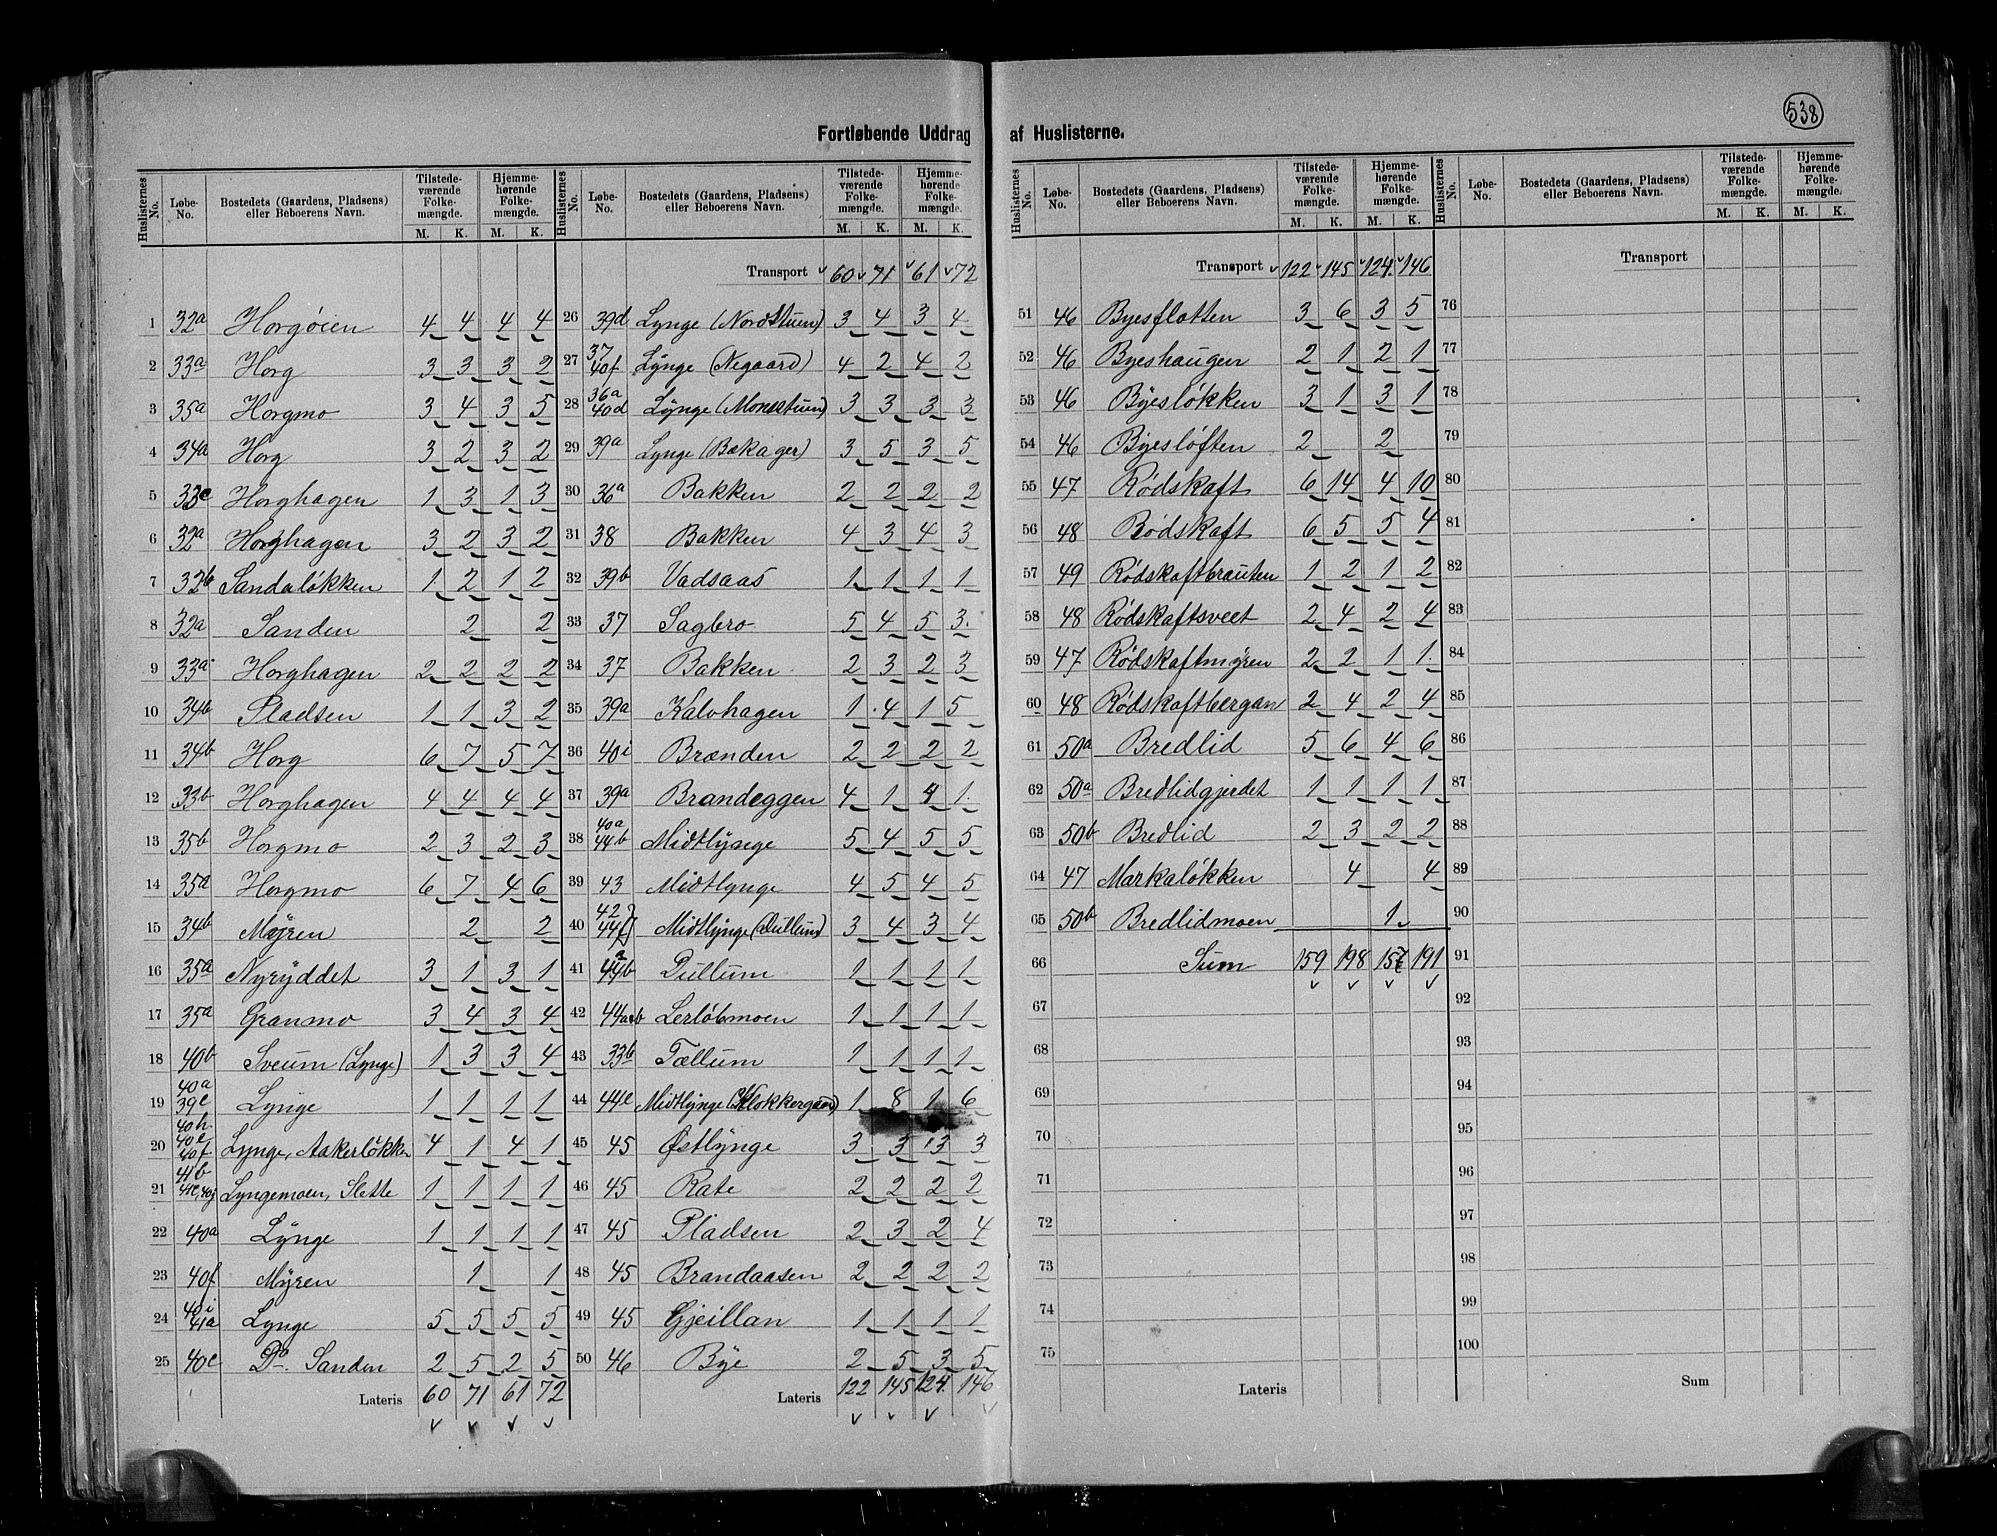 538
Fortløbende Uddrag af Huslisterne.
Huslisternes No. | Løbe-No. | Bostedets (Gaardens, Pladsens) eller Beboerens Navn. | Tilstedeværende Folkemængde. M. K. | Hjemmehørende Folkemængde. M. K.
1 32a Horgøien 4 4 4 4
2 33a Horg 3 3 3 2
3 35a Horgmo 3 4 3 5
4 34a Horg 3 2 3 2
5 33c Horghagen 1 3 1 3
6 32a Horghagen 3 2 3 2
7 32b Sandaløkken 1 2 1 2
8 32a Sanden 2 2
9 33a Horghagen 2 2 2 2
10 34b Pladsen 1 1 3 2
11 34b Horg 6 7 5 7
12 33b Horghagen 4 4 4 4
13 35b Horgmo 2 3 2 3
14 35a Horgmo 6 7 4 6
15 34b Myren 2 2
16 35a Nyryddet 3 1 3 1
17 35a Granmo 3 4 3 4
18 40b Sveum (Lynge) 1 3 3 4
19 40a 39c Lynge 1 1 1 1
20 40h 40e 40f Lynge, Aakerløkken 4 1 4 1
21 41b 41c, 40g Lyngemoen, Slette 1 1 1 1
22 40a Lynge 1 1 1 1
23 40f Myren 1 1
24 40i 41a Lynge 5 5 5 5
25 40c Do. Sanden 2 5 2 5
Lateris 60 71 61 72
Huslisternes No. | Løbe-No. | Bostedets (Gaardens, Pladsens) eller Beboerens Navn. | Tilstedeværende Folkemængde. M. K. | Hjemmehørende Folkemængde. M. K.
Transport 60 71 61 72
26 39d Lynge (Nordstuen) 3 4 3 4
27 37 40f Lynge (Negaard) 4 2 4 2
28 36a 40d Lynge (Monsstuen) 3 3 3 3
29 39a Lynge (Bækager) 3 5 3 5
30 36a Bakken 2 2 2 2
31 38 Bakken 4 3 4 3
32 39b Vadsaas 1 1 1 1
33 37 Sagbro 5 4 5 3
34 37 Bakken 2 3 2 3
35 39a Kalvhagen 1 4 1 5
36 40i Brænden 2 2 2 2
37 39a Brandeggen 4 1 4 1
38 40a 44b Midtlynge 5 4 5 5
39 43 Midtlynge 4 5 4 5
40 42 44f Midtlynge (Dullum) 3 4 3 4
41 44b Dullum 1 1 1 1
42 44a+b Lerløbmoen 1 1 1 1
43 33b Tællum 1 1 1 1
44 44c Midtlynge (Klokkergaard) 1 8 1 6
45 45 Østlynge 3 3 3 3
46 45 Rate 2 2 2 2
47 45 Pladsen 2 3 2 4
48 45 Brandaasen 2 2 2 2
49 45 Gjeillan 1 1 1 1
50 46 Bye 2 5 3 5
Lateris 122 145 124 146
Huslisternes No. | Løbe-No. | Bostedets (Gaardens, Pladsens) eller Beboerens Navn. | Tilstedeværende Folkemængde. M. K. | Hjemmehørende Folkemængde. M. K.
Transport 122 145 124 146
51 46 Byesflotten 3 6 3 5
52 46 Byeshaugen 2 1 2 1
53 46 Byesløkken 3 1 3 1
54 46 Byesløften 2 2
55 47 Rødskaft 6 14 4 10
56 48 Rødskaft 6 5 5 4
57 49 Rødskaftbrauten 1 2 1 2
58 48 Rødskaftsveet 2 4 2 4
59 47 Rødskaftmyren 2 2 1 1
60 48 Rødskaftbergan 2 4 2 4
61 50a Bredlid 5 6 4 6
62 50a Bredlidgjerdet 1 1 1 1
63 50b Bredlid 2 3 2 2
64 47 Markaløkken 4 4
65 50b Bredlidmoen 1
66 Sum 159 198 157 191
67
68
69
70
71
72
73
74
75
Lateris
Huslisternes No. | Løbe-No. | Bostedets (Gaardens, Pladsens) eller Beboerens Navn. | Tilstedeværende Folkemængde. M. K. | Hjemmehørende Folkemængde. M. K.
Transport
76
77
78
79
80
81
82
83
84
85
86
87
88
89
90
91
92
93
94
95
96
97
98
99
100
Sum